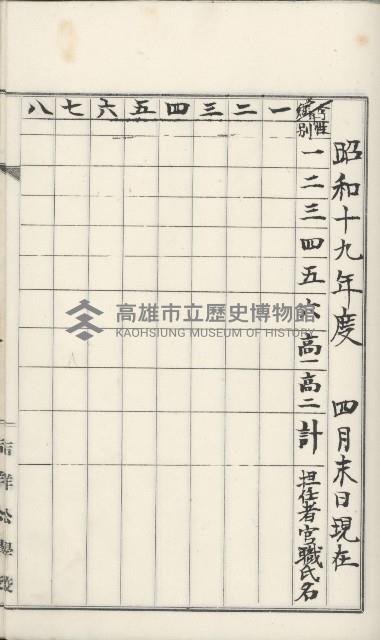 昭和十九年度 四月末日現在
性別
一 二 三 四 五 六 高一 高二 計 担任者官職氏名
一
二
三
四
五
六
七
八
高雄市立歷史博物館
KAOHSIUNG MUSEUM OF HISTORY